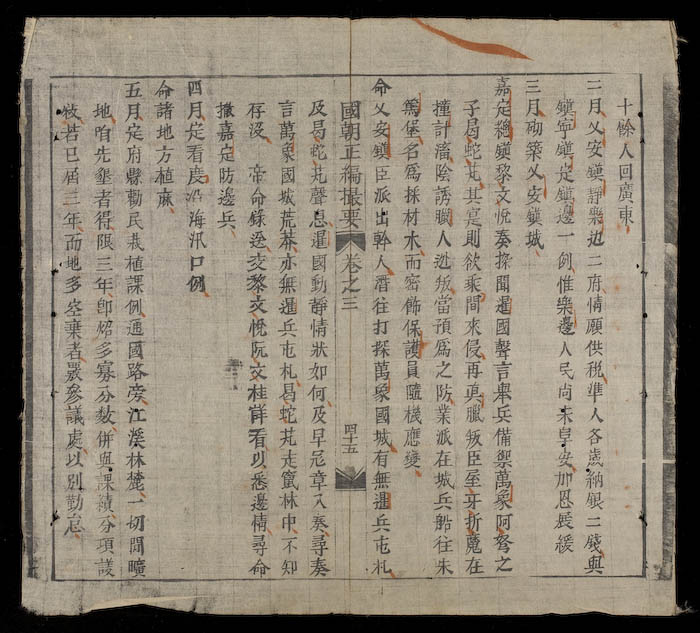 十餘人回廣東
二月乂安鎮靜樂边二府情願供稅準人各歲納銀二錢與
鎮寧鎮定鎮邊一例惟樂邊人民尚未皇安加恩展緩
三月砌築乂安鎮城
嘉定總鎮黎文悅奏探聞暹國聲言舉兵備禦萬象阿弩之
子曷蛇芃其寔則欲乘間來侵再真臘叛臣屋牙折蒐在
撞計潘陰誘職人逃叛當預為之防業派在城兵船往朱
篤堡名為採材木而密飾保護員隨機應變
命乂安鎮臣派出幹人潛往打探萬象國城有無暹兵屯札
國朝正編撮要 卷之三 四十五
及曷蛇芃聲息暹國動靜情狀如何及早完章入奏尋奏
言萬象國城荒莽亦無暹兵屯札曷蛇芃走竄林中不知
存沒 帝命錄送交黎文悅阮文桂詳看以悉邊情尋命
撤嘉定防邊兵
四月定看度沿海汛口例
命諸地方植麻
五月定府縣勸民栽植課例通國路旁江溪林麓一切閒曠
地咱先墾者得限三年卽炤多寡分數併與課績分項議
敘若已屆三年而地多空棄者嚴參議處以別勤怠